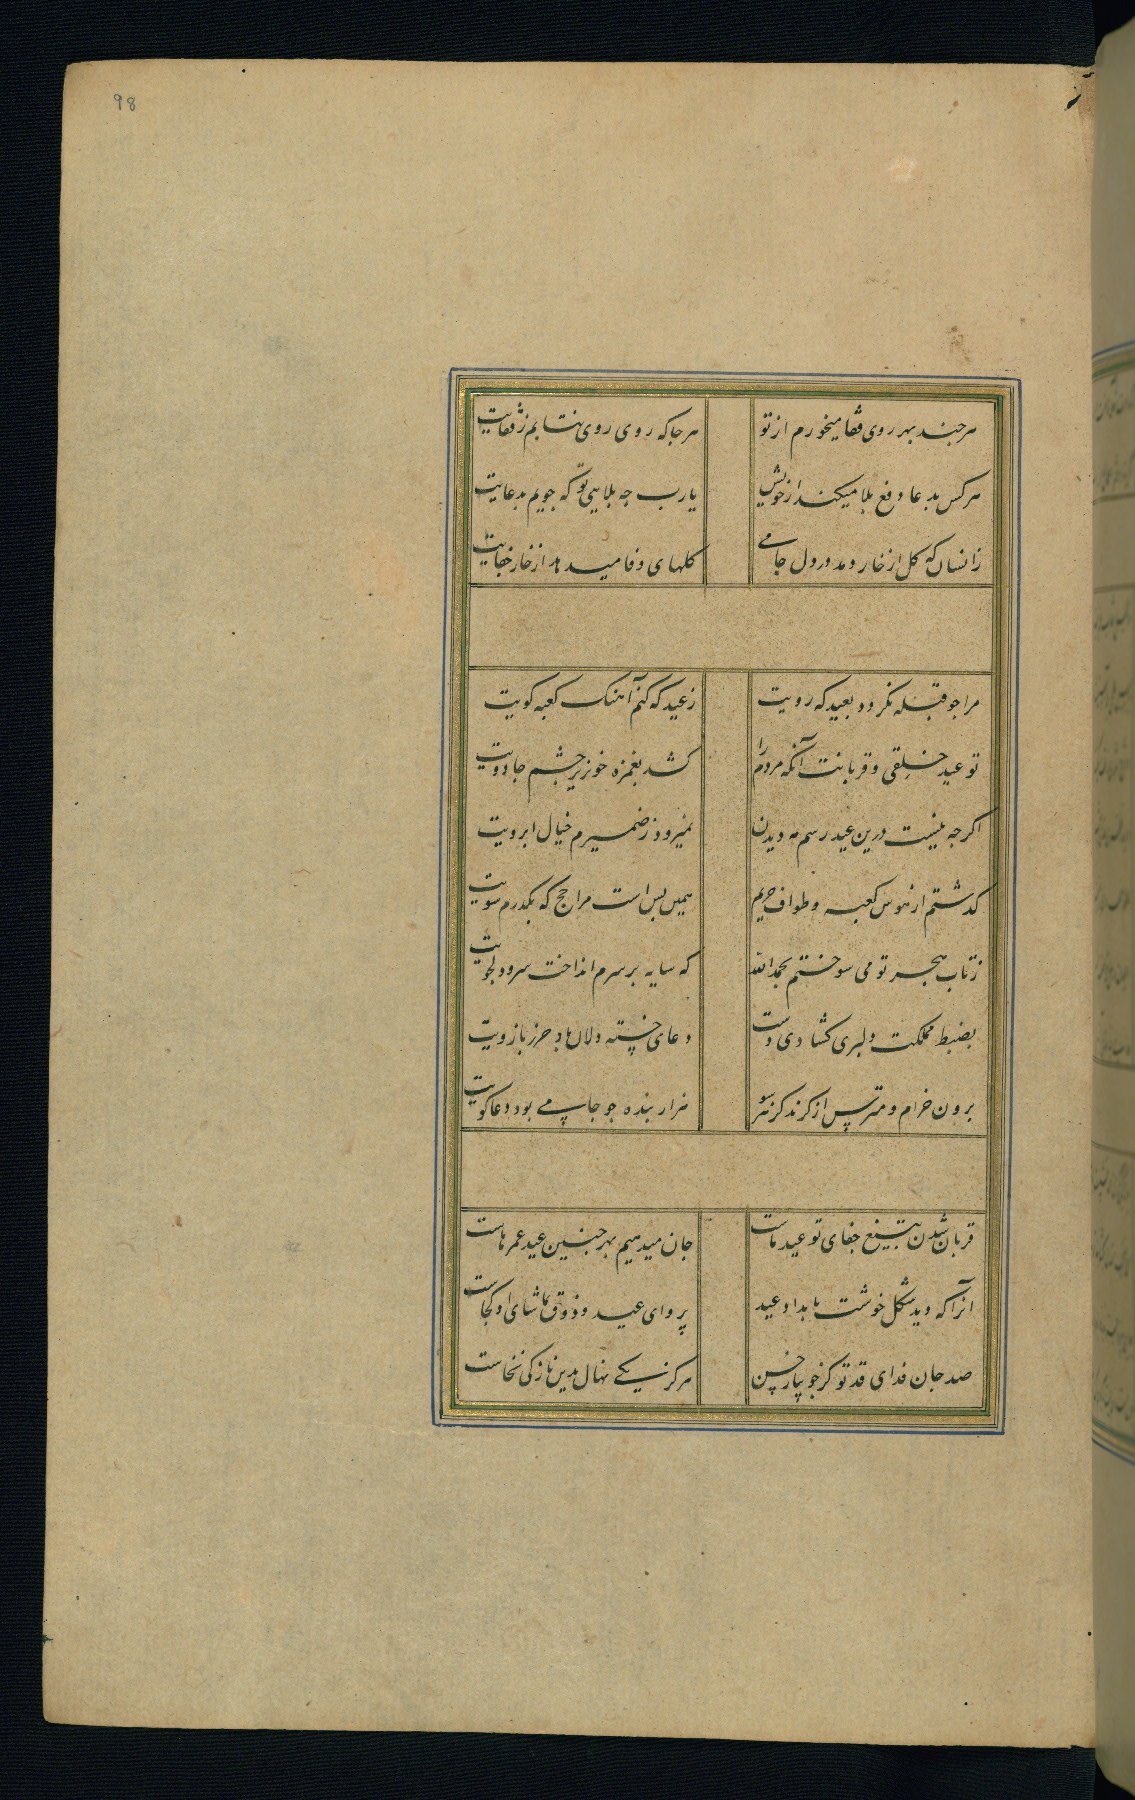 98
هرجند بهر روی قفا میخورم از تو هرجا که روی روی نتابم ز قفایت
هرکس بدعا دفع بلا میکند از خویش یارب جه بلایی تو که جویم بدعایت
زانسان که کل از خار دمد در دل جامی کلهای وفا میدهد از خار جفایت
مرا جو قبله نکردد بعید که رویت ز عید که کنم آهنک کعبه کویت
تو عید خلقی و قربانت آنکه مردم را کشد بغمزه خونریز چشم جادویت
اکرجه نیست درین عید رسم مه دیدن نمیرود ز ضمیرم خیال ابرویت
کدشتم از هوس کعبه و طواف حریم همین بس است مرا حج که بکدرم سویت
ز تاب هجر تو می سوختم بحمد الله که سایه بر سرم انداخت سرو دلجویت
بضبط مملکت دلبری کشادی دست دعای خسته دلان باد حرز بازویت
برون خرام و مترس از کزند کز هر سو هزار بنده جو جامی بود دعا کویت
قربان شدن بتیغ جفای تو عید ماست جان میدهیم بهر جنین عید عمرهاست
آنرا که دید شکل خوشت بامداد عید پروای عید و ذوق تماشای او کجاست
صد جان فدای قد تو کز جویبار حسن هرکز یکی نهال بدین نازکی نخاست